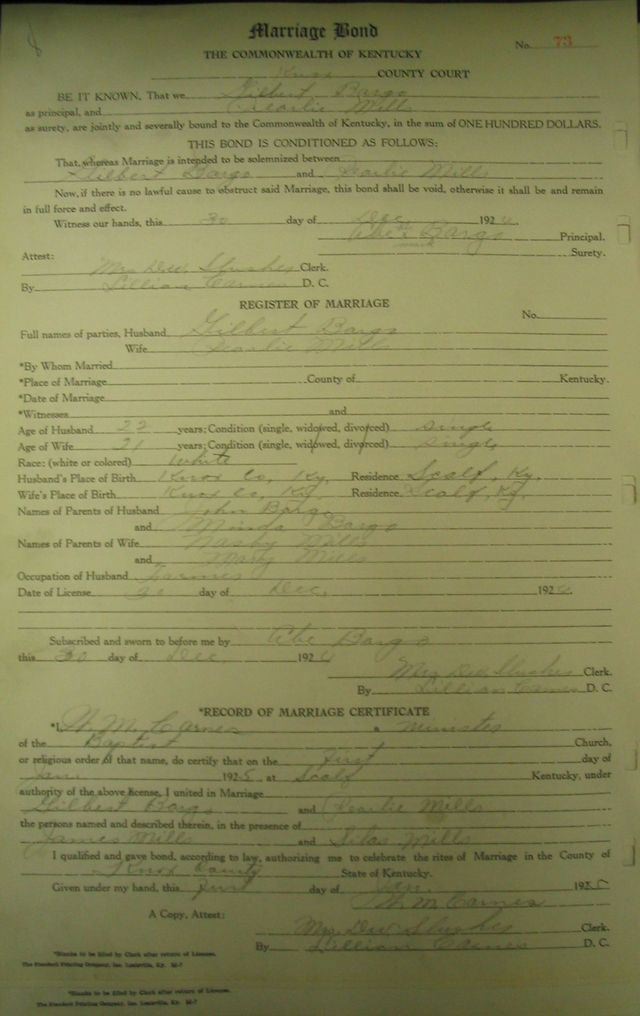 Marriage Bond
No. 73
THE COMMONWEALTH OF KENTUCKY
Knox COUNTY COURT
BE IT KNOWN, That we Gilbert Bargo
as principal, and Pearlie Mills
as surety, are jointly and severally bound to the Commonwealth of Kentucky, in the sum of ONE HUNDRED DOLLARS.
THIS BOND IS CONDITIONED AS FOLLOWS:
That, whereas Marriage is intended to be solemnized between
Gilbert Bargo and Pearlie Mills
Now, if there is no lawful cause to obstruct said Marriage, this bond shall be void, otherwise it shall be and remain
in full force and effect.
Witness our hands, this 30 day of Dec, 1924
Abe Bargo Principal.
Surety.
Attest:
Mrs Dew Slushes Clerk.
By Lillian Carnes D. C.
REGISTER OF MARRIAGE
No.
Full names of parties, Husband Gilbert Bargo
Wife Pearlie Mills
*By Whom Married
*Place of Marriage County of Kentucky.
*Date of Marriage
*Witnesses and
Age of Husband 22 years; Condition (single, widowed, divorced) single
Age of Wife 21 years; Condition (single, widowed, divorced) single
Race: (white or colored) White
Husband's Place of Birth Knox Co, Ky. Residence Scalf, Ky.
Wife's Place of Birth Knox Co, Ky Residence. Scalf, Ky.
Names of Parents of Husband John Bargo
and Minda Bargo
Names of Parents of Wife Mills
and Mary Mills
Occupation of Husband Farmer
Date of License 30 day of Dec, 1924
Subscribed and sworn to before me by Abe Bargo
this 30 day of Dec, 1924
Mrs Dew Slushes Clerk.
By Lillian Carnes D. C.
*RECORD OF MARRIAGE CERTIFICATE
*I, W. M. Carnes a Minister
of the Baptist Church,
or religious order of that name, do certify that on the first day of
Jan 1925 at Scalf Kentucky, under
authority of the above license, I united in Marriage
Gilbert Bargo and Pearlie Mills
the persons named and described therein, in the presence of
James Mills and Silas Mills
I qualified and gave bond, according to law, authorizing me to celebrate the rites of Marriage in the County of
Knox County State of Kentucky.
Given under my hand, this first day of Jan. 192
W. M. Carnes
A Copy, Attest:
Mrs. Dew Slushes Clerk.
By Lillian Carnes D. C.
*Blanks to be filled by Clerk after return of License.
The Standard Printing Company, Inc. Louisville, Ky.
*Blanks to be filled by Clerk after return of License.
The Standard Printing Company, Inc. Louisville, Ky.